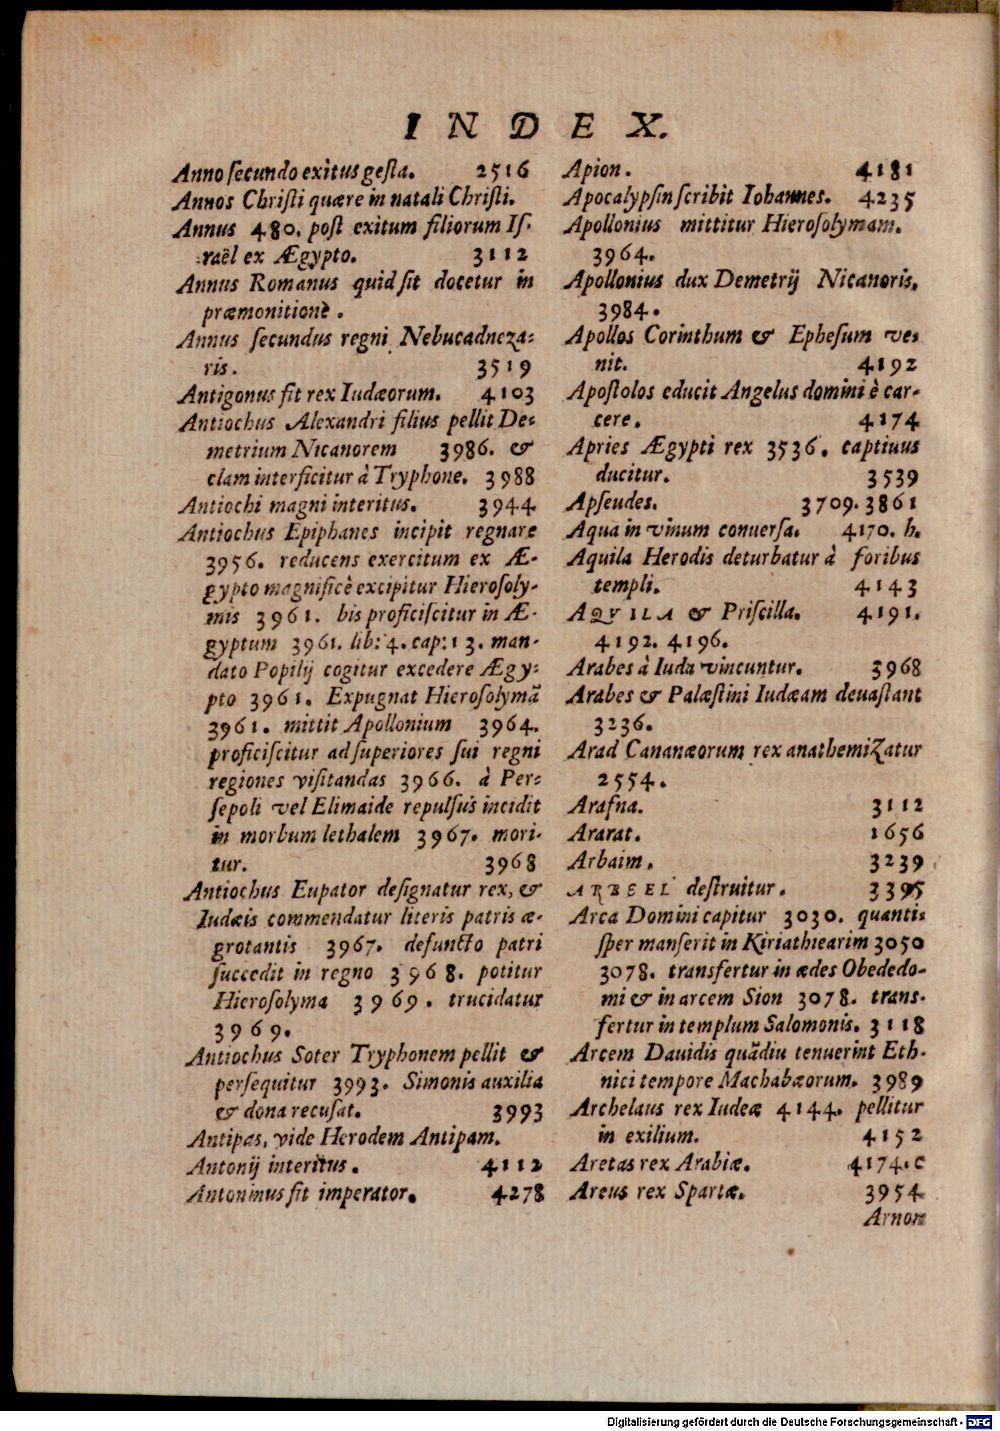 INDEX.
Anno ſecundo exitus geſta. 2516
Annos Chriſti quære in natali Chriſti.
Annus 480. poſt exitum filiorum Iſ-
raël ex Ægypto. 3112
Annus Romanus quid ſit docetur in
præmonitionè.
Annus ſecundus regni Nebucadneza-
ris. 3519
Antigonus fit rex Iudæorum. 4103
Antiochus Alexandri filius pellit De-
metrium Nicanorem 3986. &
clam interficitur à Tryphone. 3988
Antiochi magni interitus. 3944
Antiochus Epiphanes incipit regnare
3956. reducens exercitum ex Æ-
gypto magnificè excipitur Hieroſoly-
mis 3961. bis proficiſcitur in Æ-
gyptum 3961. lib: 4. cap: 13. man-
dato Popilij cogitur excedere Ægy-
pto 3961. Expugnat Hieroſolymã
3961. mittit Apollonium 3964.
proficiſcitur ad ſuperiores ſui regni
regiones viſitandas 3966. à Per-
ſepoli vel Elimaide repulſus incidit
in morbum lethalem 3967. mori-
tur. 3968
Antiochus Eupator deſignatur rex, &
Iudæis commendatur literis patris æ-
grotantis 3967. defuncto patri
ſuccedit in regno 3968. potitur
Hieroſolyma 3969. trucidatur
3969.
Antiochus Soter Tryphonem pellit &
perſequitur 3993. Simonis auxilia
& dona recuſat. 3993
Antipas, vide Herodem Antipam.
Antonij interitus. 4112
Antoninus fit imperator. 4278
Apion. 4181
Apocalypſin ſcribit Iohannes. 4235
Apollonius mittitur Hieroſolymam.
3964.
Apollonius dux Demetrij Nicanoris.
3984.
Apollos Corinthum & Epheſum ve-
nit. 4192
Apoſtolos educit Angelus domini è car-
cere. 4174
Apries Ægypti rex 3536. captiuus
ducitur. 3539
Apſeudes. 3709. 3861
Aqua in vinum conuerſa. 4170. h.
Aquila Herodis deturbatur à foribus
templi. 4143
AQVILA & Priſcilla. 4191.
4192. 4196.
Arabes à Iuda vincuntur. 3968
Arabes & Palæſtini Iudæam deuaſtant
3236.
Arad Cananæorum rex anathemizatur
2554.
Araſna. 3112
Ararat. 1656
Arbaim. 3239
ARBEEL deſtruitur. 3395
Arca Domini capitur 3030. quanti-
ſper manſerit in Kiriathiearim 3050
3078. transfertur in ædes Obededo-
mi & in arcem Sion 3078. trans-
fertur in templum Salomonis. 3118
Arcem Dauidis quãdiu tenuerint Eth-
nici tempore Machabæorum. 3989
Archelaus rex Iudeæ 4144. pellitur
in exilium. 4152
Aretas rex Arabiæ. 4174. c
Areus rex Spartæ. 3954
Arnon
Digitalisierung gefördert durch die Deutsche Forschungsgemeinschaft - DFG